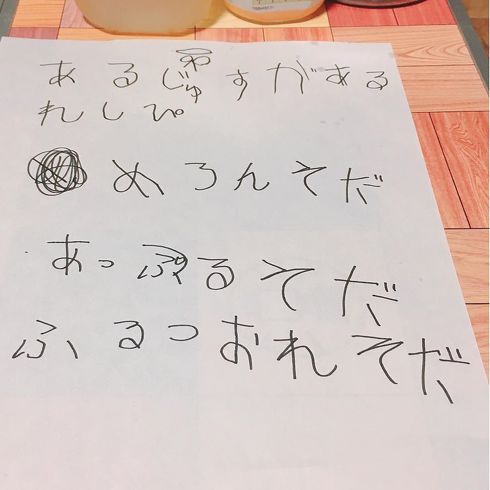 あるじゅすがある
れしぴ
めろんそだ
あっぷるそだ
ふるつおれそだ